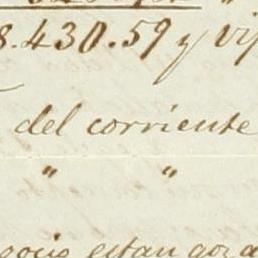 8.430.59 y vi
del corriente
" "
estan goza